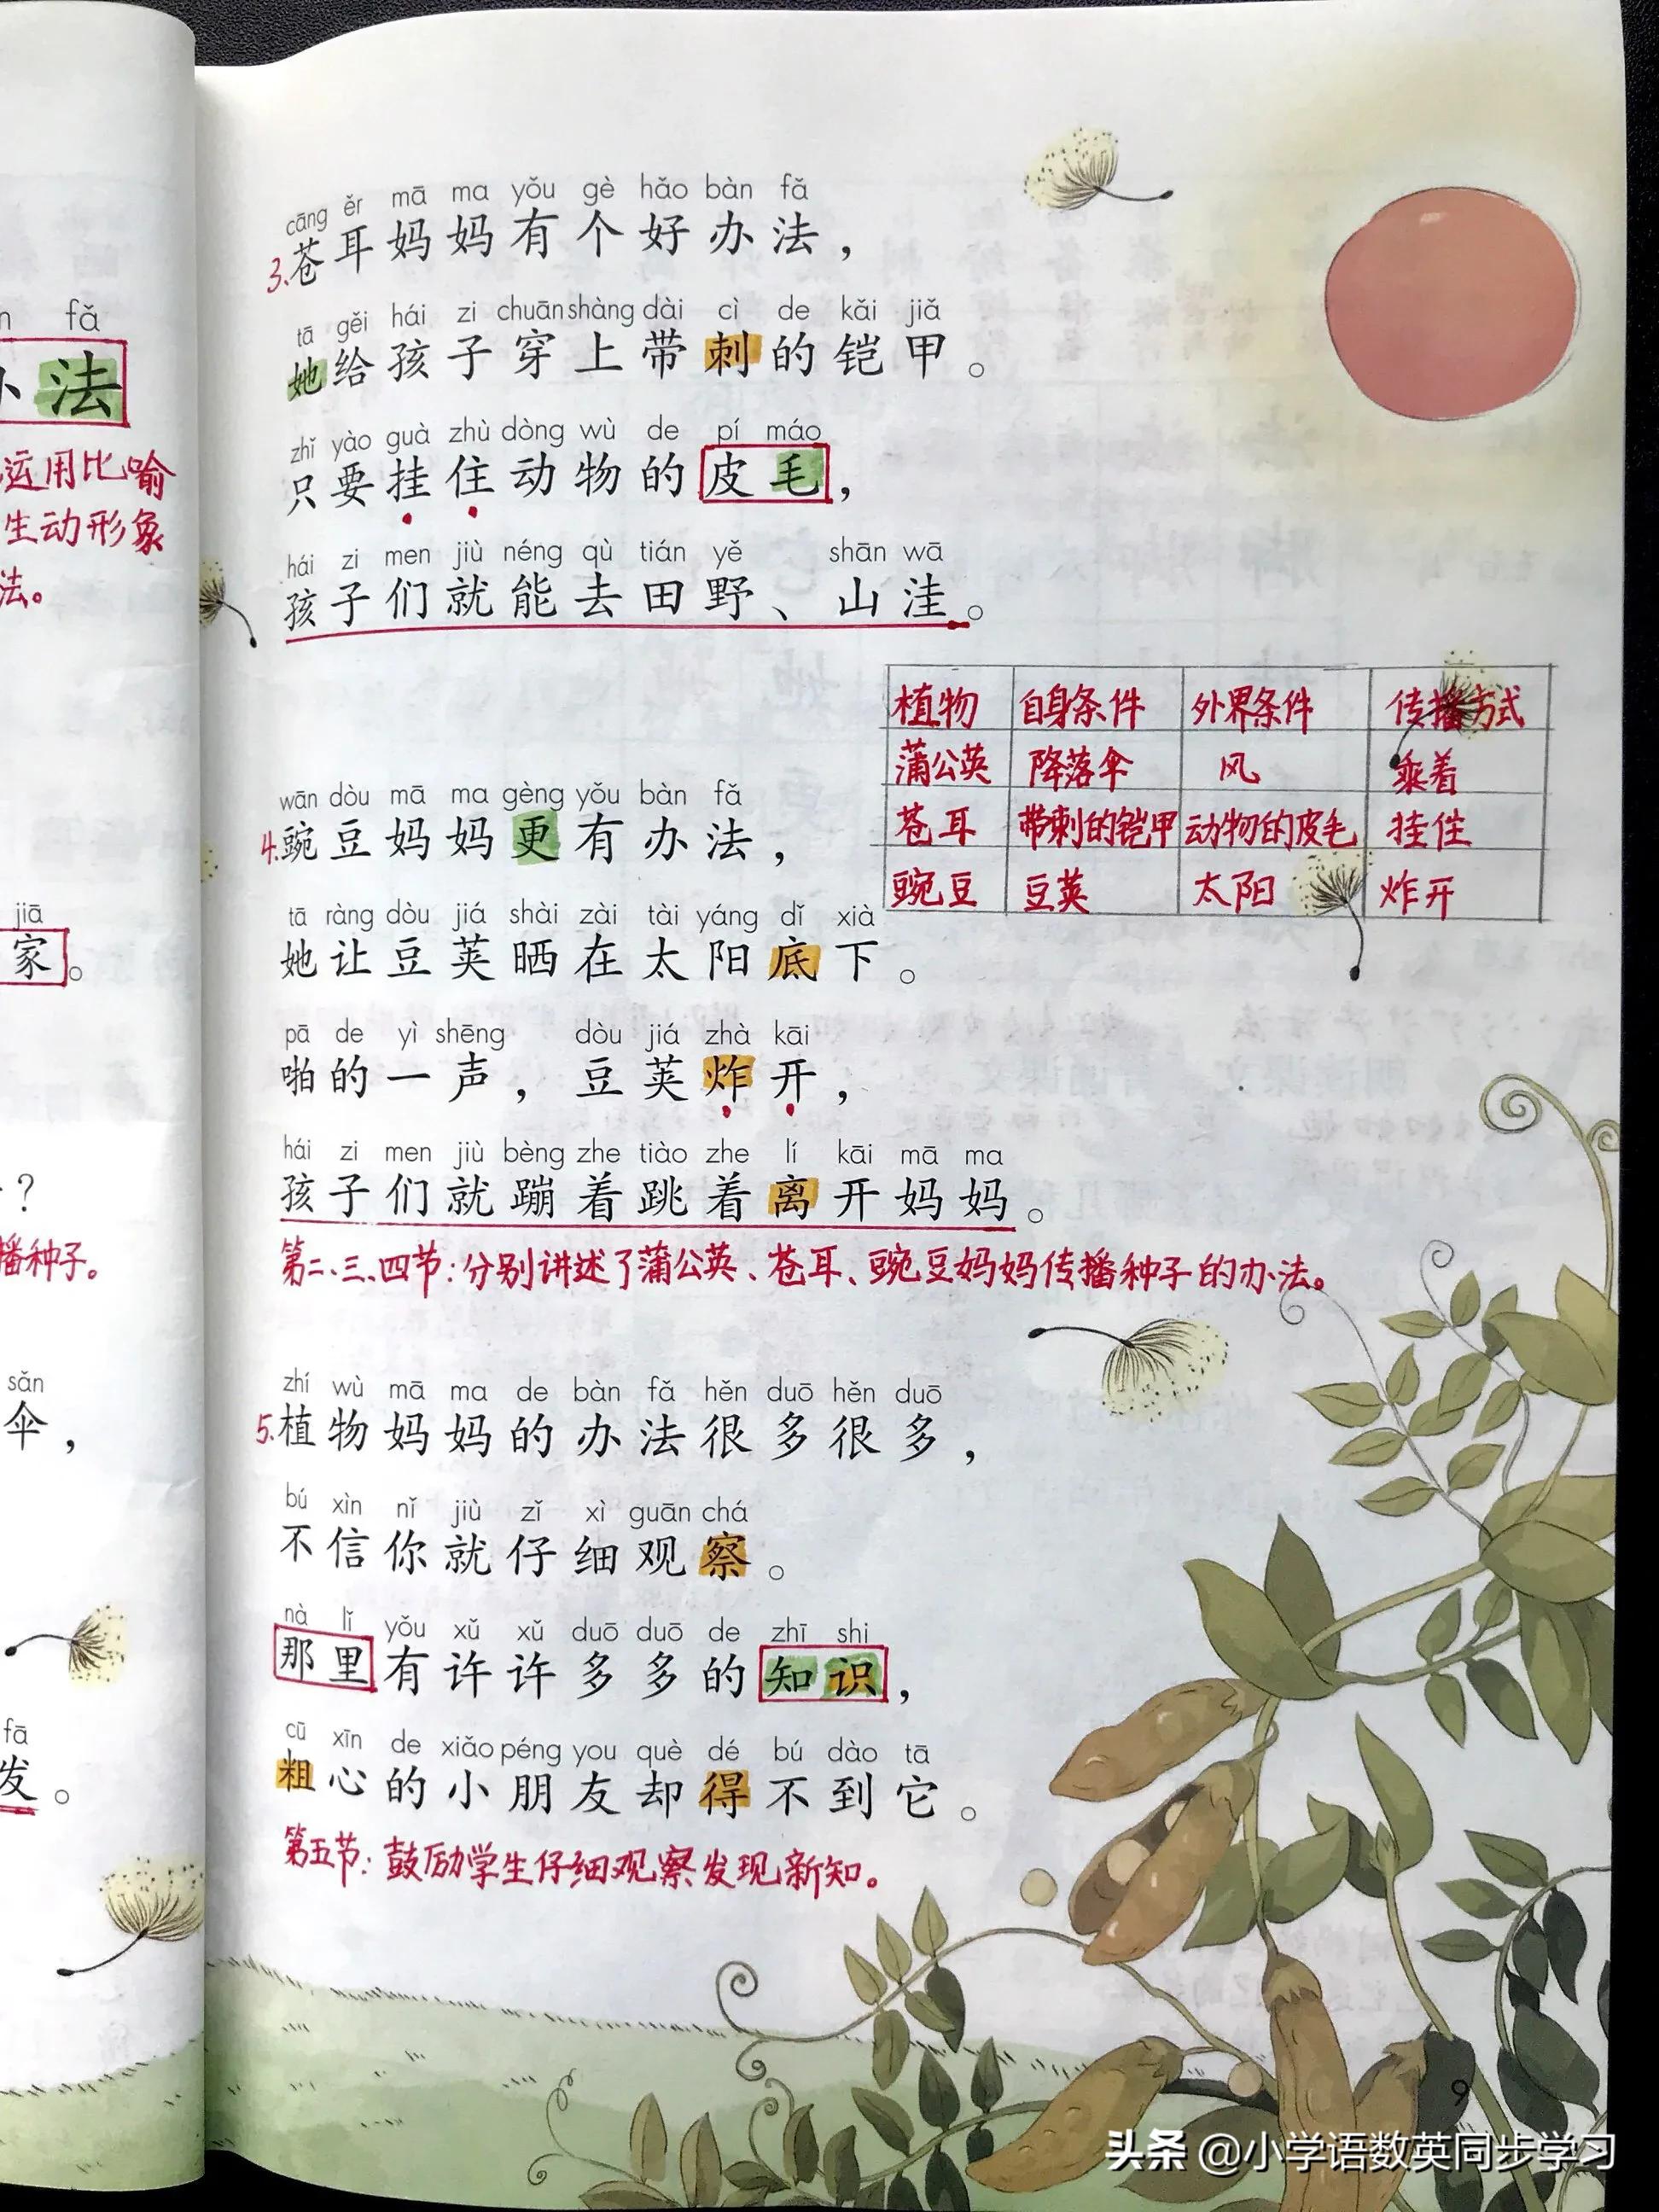 fǎ
法
运用比喻
生动形象
法。
jiā
家。
？
播种子。
sǎn
伞，
fā
发。
cāng ěr mā ma yǒu gè hǎo bàn fǎ
3.苍耳妈妈有个好办法，
tā gěi hái zi chuān shàng dài cì de kǎi jiǎ
她给孩子穿上带刺的铠甲。
zhǐ yào guà zhù dòng wù de pí máo
只要挂住动物的皮毛，
hái zi men jiù néng qù tián yě shān wā
孩子们就能去田野、山洼。
植物 自身条件 外界条件 传播方式
蒲公英 降落伞 风 乘着
苍耳 带刺的铠甲 动物的皮毛 挂住
豌豆 豆荚 太阳 炸开
wān dòu mā ma gèng yǒu bàn fǎ
4.豌豆妈妈更有办法，
tā ràng dòu jiá shài zài tài yáng dǐ xià
她让豆荚晒在太阳底下。
pā de yì shēng dòu jiá zhà kāi
啪的一声，豆荚炸开，
hái zi men jiù bèng zhe tiào zhe lí kāi mā ma
孩子们就蹦着跳着离开妈妈。
第二、三、四节：分别讲述了蒲公英、苍耳、豌豆妈妈传播种子的办法。
zhí wù mā ma de bàn fǎ hěn duō hěn duō
5.植物妈妈的办法很多很多，
bú xìn nǐ jiù zǐ xì guān chá
不信你就仔细观察。
nà lǐ yǒu xǔ xǔ duō duō de zhī shi
那里有许许多多的知识，
cū xīn de xiǎo péng you què dé bú dào tā
粗心的小朋友却得不到它。
第五节：鼓励学生仔细观察发现新知。
9
头条 @小学语数英同步学习